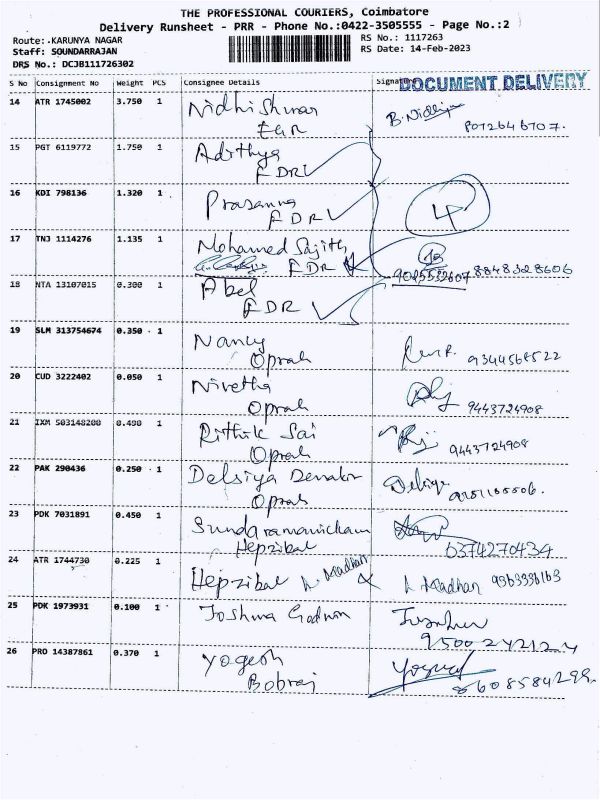 THE PROFESSIONAL COURIERS, Coimbatore
Delivery Runsheet - PRR - Phone No.:0422-3505555 - Page No.:2
Route:-KARUNYA NAGAR
RS No.: 1117263
Staff: SOUNDARRAJAN
RS Date: 14-Feb-2023
DRS No.: DCJB111726302
S No Consignment No Weight PCS Consignee Details Signature
DOCUMENT DELIVERY
14 ATR 1745002 3.750 1 Nidhishwar
EGR
15 PGT 6119772 1.750 1 Adithya
EDRL
16 KDI 798136 1.320 1 Prasanna
EDRL
4
17 TNJ 1114276 1.135 1 Mohamed Sajith
EDR
8848328606
18 NTA 13107015 0.300 1 Abel
EDR
19 SLM 313754674 0.350 1 Nancy
Oprah
9344564522
20 CUD 3222402 0.050 1 Nivetha
Oprah
9443724908
21 IXM 503148200 0.490 1 Rithik Sai
Oprah
9443724908
22 PAK 290436 0.250 1 Delsiya
Oprah
23 PDK 7031891 0.450 1 Sundaramanickam
Hepzibal
6374270434
24 ATR 1744730 0.225 1 Hepzibal A Madhan
A Madhan
25 PDK 1973931 0.100 1 Joshwa Godwin
26 PRO 14387861 0.370 1 Yogesh
Bobraj
8608584299.